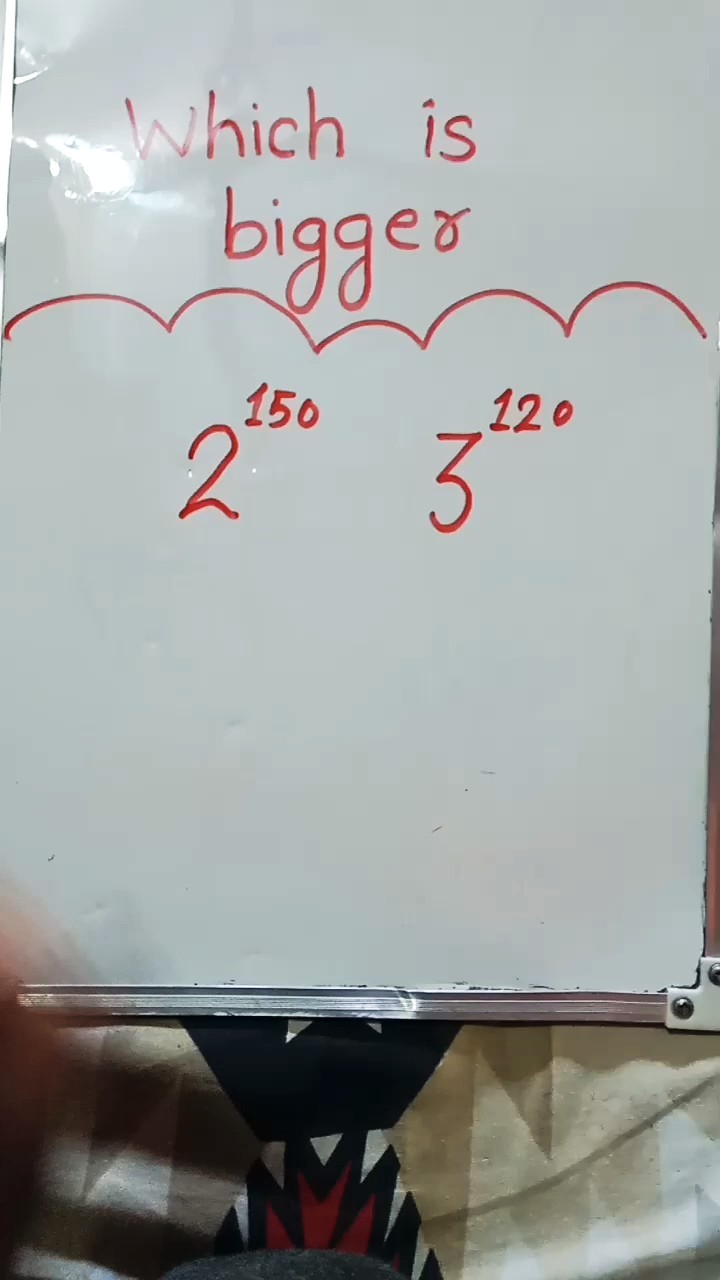 Which is
bigger
2^150 3^120